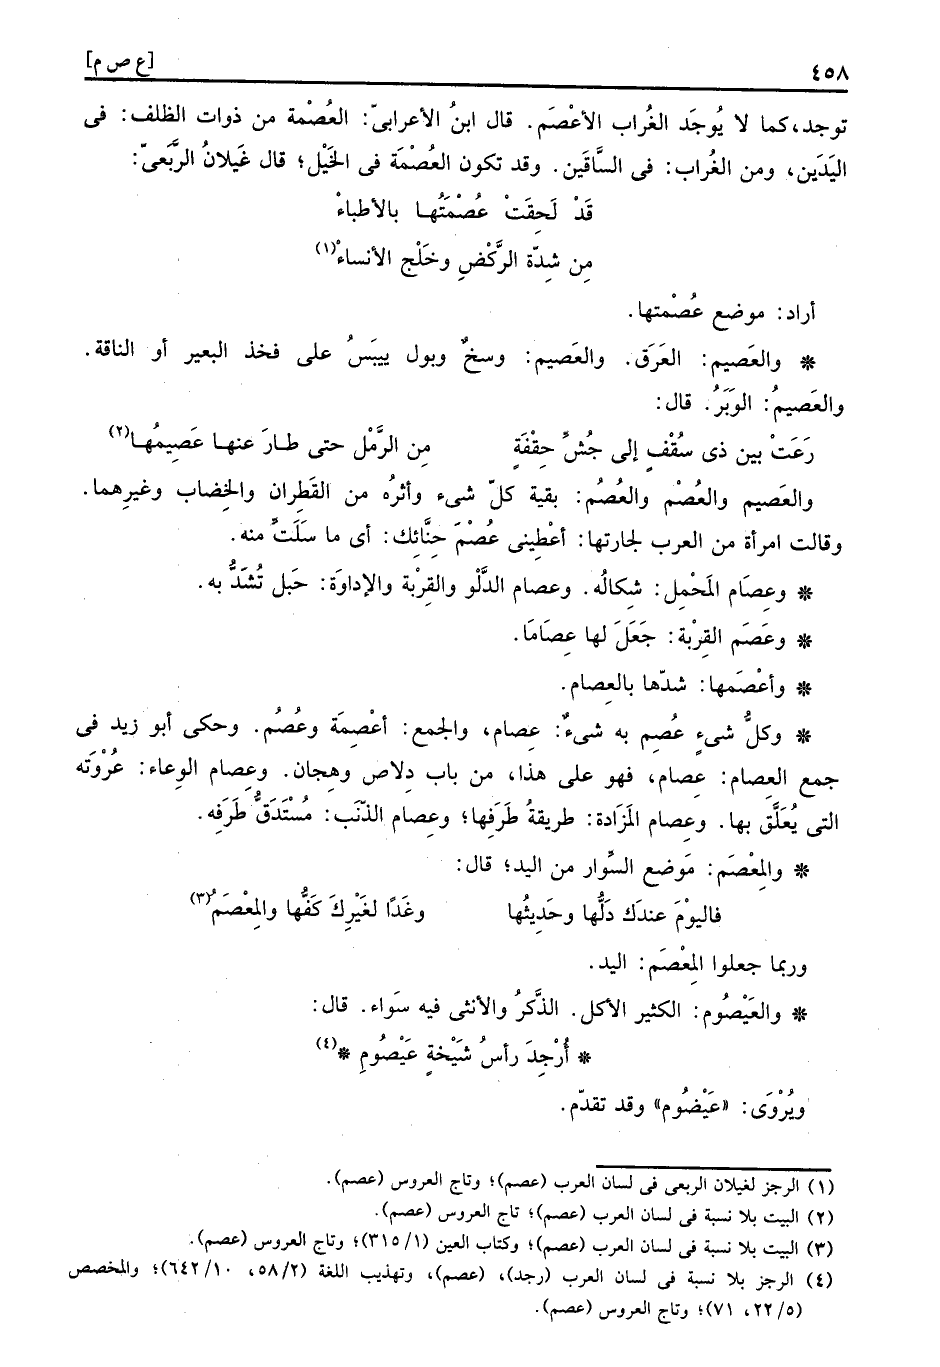 ٤٥٨ [ع ص م]
توجد، كما لا يُوجَد الغُراب الأعْصَم. قال ابنُ الأعرابىّ: العُصْمة من ذوات الظلف: فى
اليَدَين، ومن الغُراب: فى السَّاقَين. وقد تكون العُصْمَة فى الخَيْل؛ قال غَيلانُ الرَّبَعىّ:
قَدْ لَحِقَتْ عُصْمَتُها بالأطباءْ
مِن شِدّة الرَّكْضِ وخَلْجِ الأنساءْ(١)
أراد: موضع عُصْمتها.
* والعَصيم: العَرَق. والعَصيم: وسخٌ وبول ييبَسُ على فخذ البعير أو الناقة.
والعَصيمُ: الوَبَرُ. قال:
رَعَتْ بين ذى سُقْفٍ إلى جُشِّ حِقْفَةٍ من الرَّمْل حتى طارَ عنها عَصِيمُها(٢)
والعَصيم والعُصْم والعُصُم: بقية كلّ شىء وأثرُه من القَطِران والخِضاب وغيرهما.
وقالت امرأة من العرب لجارتها: أعْطِينى عُصْمَ حِنَّائِك: أى ما سَلَتِّ منه.
* وعِصَام المَحْمِل: شكالُه. وعصام الدَّلْو والقِرْبة والإداوَة: حَبل تُشَدُّ به.
* وعَصَم القِرْبة: جَعَلَ لها عِصَامًا.
* وأعْصَمها: شدّها بالعِصام.
* وكلُّ شىءٍ عُصِم به شىءٌ: عِصام، والجمع: أعْصِمَة وعُصُم. وحكى أبو زيد فى
جمع العِصام: عِصام، فهو على هذا، من باب دِلاص وهِجان. وعِصام الوِعاء: عُرْوَته
التى يُعَلَّق بها. وعِصام المَزَادة: طريقةُ طَرَفِها؛ وعِصام الذَّنَب: مُسْتَدَقُّ طَرَفِه.
* والمِعْصَم: مَوضع السِّوار من اليد؛ قال:
فاليوْمَ عندَك دَلُّها وحَدِيثُها وغَدًا لغَيْرِكَ كَفُّها والمِعْصَمُ(٣)
وربما جعلوا المِعْصَم: اليد.
* والعَيْصُوم: الكثير الأكل. الذَّكرُ والأنثى فيه سَواء. قال:
* أُرْجِدَ رأسُ شَيْخةٍ عَيْصُومِ *(٤)
ويُرْوَى: «عَيْضُوم» وقد تقدّم.
(١) الرجز لغيلان الربعى فى لسان العرب (عصم)؛ وتاج العروس (عصم).
(٢) البيت بلا نسبة فى لسان العرب (عصم)؛ تاج العروس (عصم).
(٣) البيت بلا نسبة فى لسان العرب (عصم)؛ وكتاب العين (٣١٥/١)؛ وتاج العروس (عصم).
(٤) الرجز بلا نسبة فى لسان العرب (رجد)، (عصم)، وتهذيب اللغة (٥٨/٢، ٦٤٢/١٠)؛ والمخصص
(٢٢/٥، ٧١)؛ وتاج العروس (عصم).